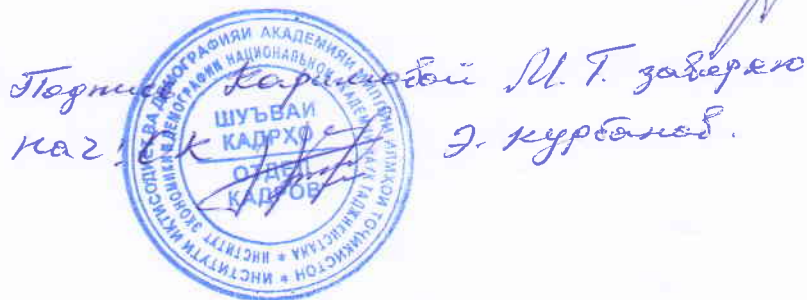 Подпись Каримовой М. Т. заверяю
нач. ОК Э. Курбанов.
ИНСТИТУТИ ИҚТИСОДИЁТ ВА ДЕМОГРАФИЯИ АКАДЕМИЯИ МИЛЛИИ ИЛМҲОИ ТОҶИКИСТОН *
ИНСТИТУТ ЭКОНОМИКИ И ДЕМОГРАФИИ НАЦИОНАЛЬНОЙ АКАДЕМИИ НАУК ТАДЖИКИСТАНА *
ШУЪБАИ
КАДРҲО
ОТДЕЛ
КАДРОВ